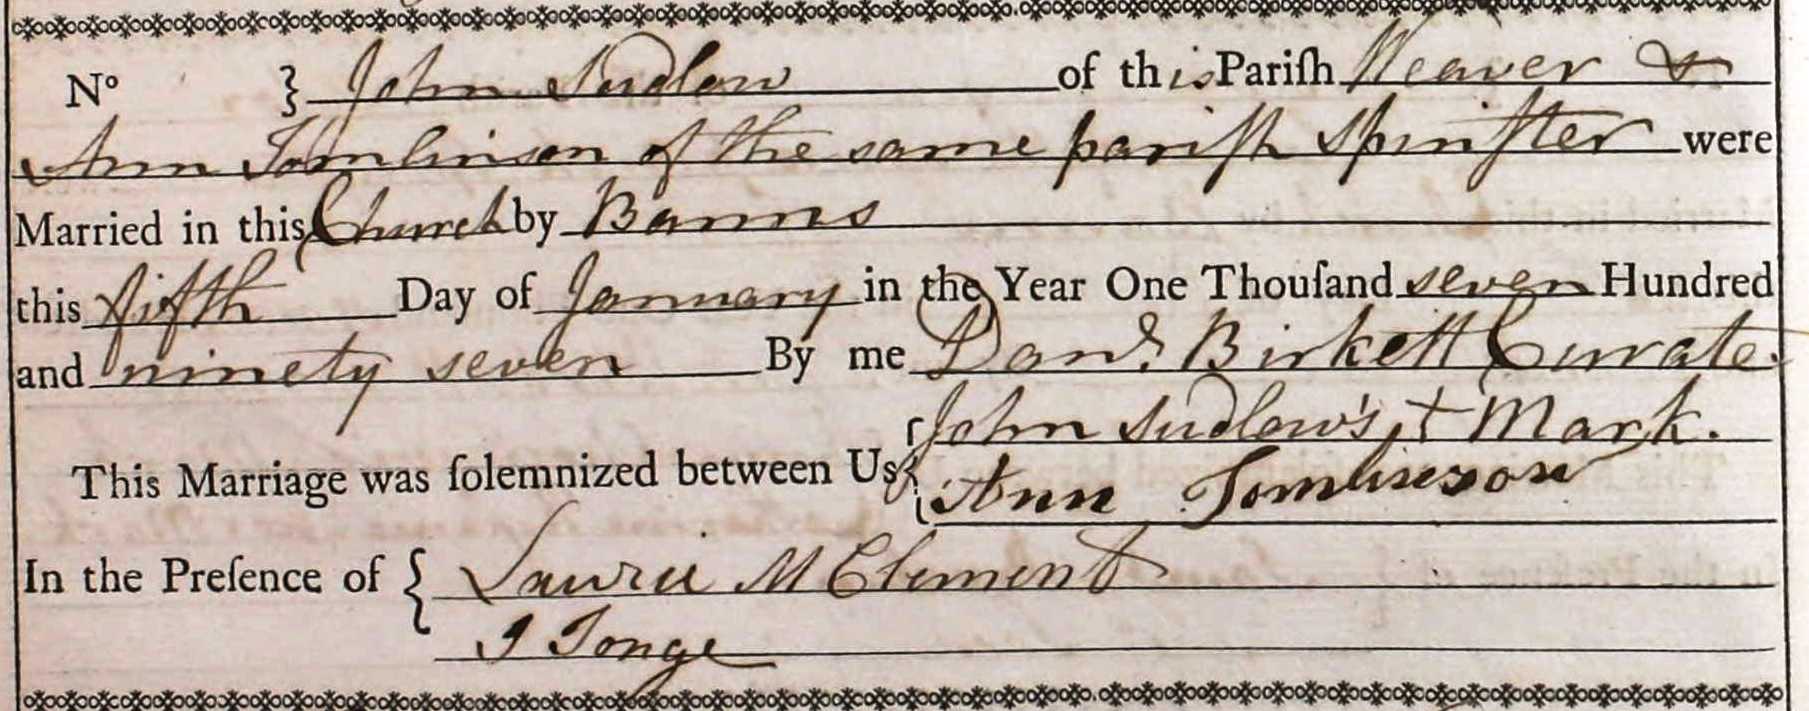 No } John Sudlow of this Pariſh Weaver &
Ann Tomlinson of the same pariſh Spinſter were
Married in this Church by Banns
this fifth Day of January in the Year One Thouſand seven Hundred
and ninety seven By me Danl. Birkett Curate.
John Sudlow's + Mark.
This Marriage was ſolemnized between Us { Ann Tomlinson
In the Preſence of { Lawrie McClement
J Tonge